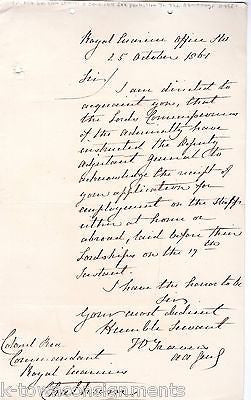 Royal Marine Office
25 October 1861
Sir
I am directed to
acquaint you, that
the Lords Commissioners
of the Admiralty have
instructed the Deputy
Adjutant General to
acknowledge the receipt of
your application for
employment on the Staff
either at home or
abroad, laid before their
Lordships on the 17th
Instant.
I have the honor to be
Sir
Your most obedient
Humble Servant
Colonel
Commandant
Royal Marines
Chatham
k-townconsignments